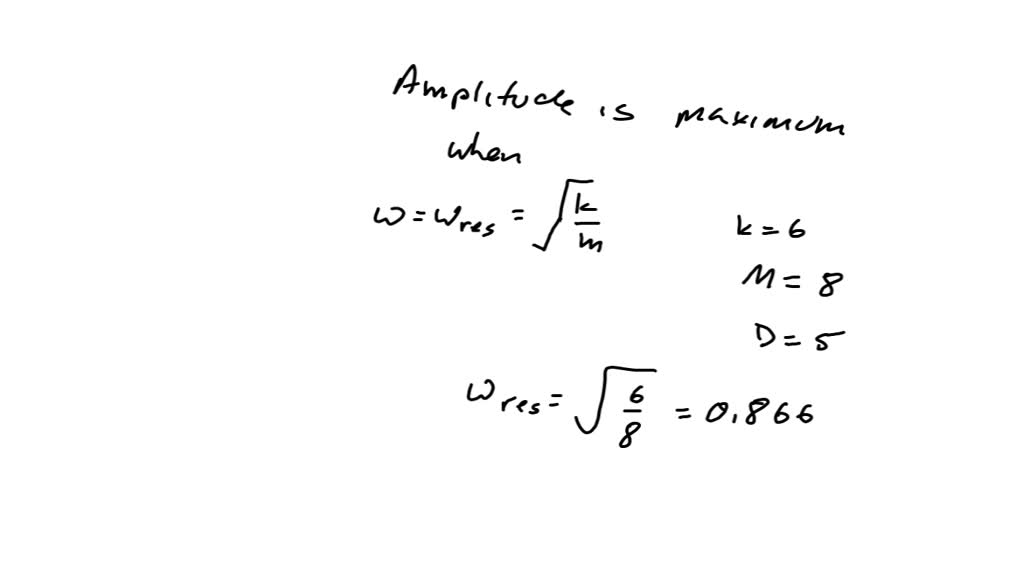 Amplitude is maximum
when
ω = ω_res = √(k/m)
k = 6
M = 8
D = 5
ω_res = √(6/8) = 0.866